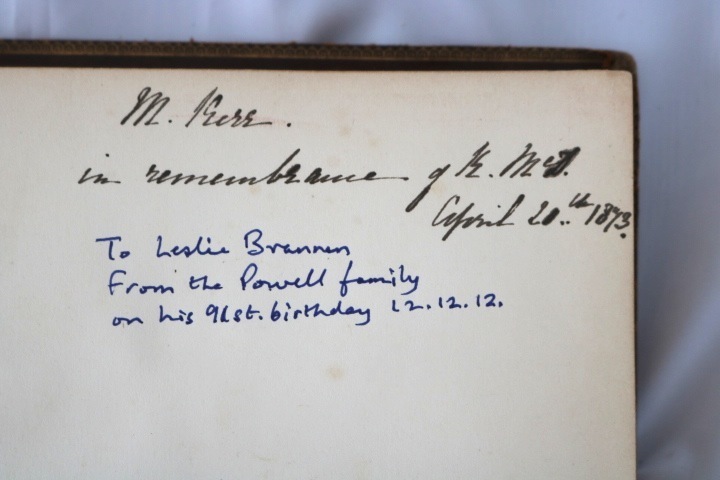 M. Kerr.
in remembrance of K. McD.
April 20th 1873.
To Leslie Brannen
From the Powell family
on his 91st. birthday 12.12.12.